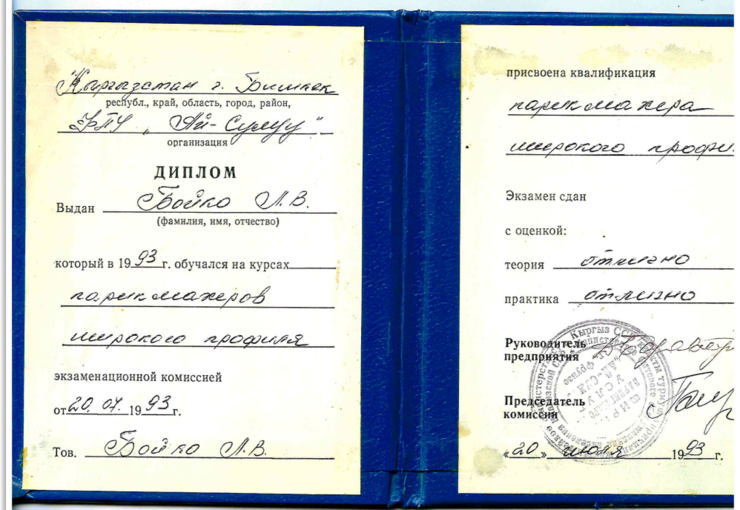 Кыргызстан г. Бишкек
республ., край, область, город, район,
"Ай-Сулуу"
организация
ДИПЛОМ
Выдан Бойко Л.В.
(фамилия, имя, отчество)
который в 1993 г. обучался на курсах
парикмахеров
широкого профиля
экзаменационной комиссией
от 20.07. 1993 г.
Тов. Бойко Л.В.
присвоена квалификация
парикмахера
широкого профи
Экзамен сдан
с оценкой:
теория отлично
практика отлично
Руководитель
предприятия
Председатель
комиссии
«20» июля 1993 г.